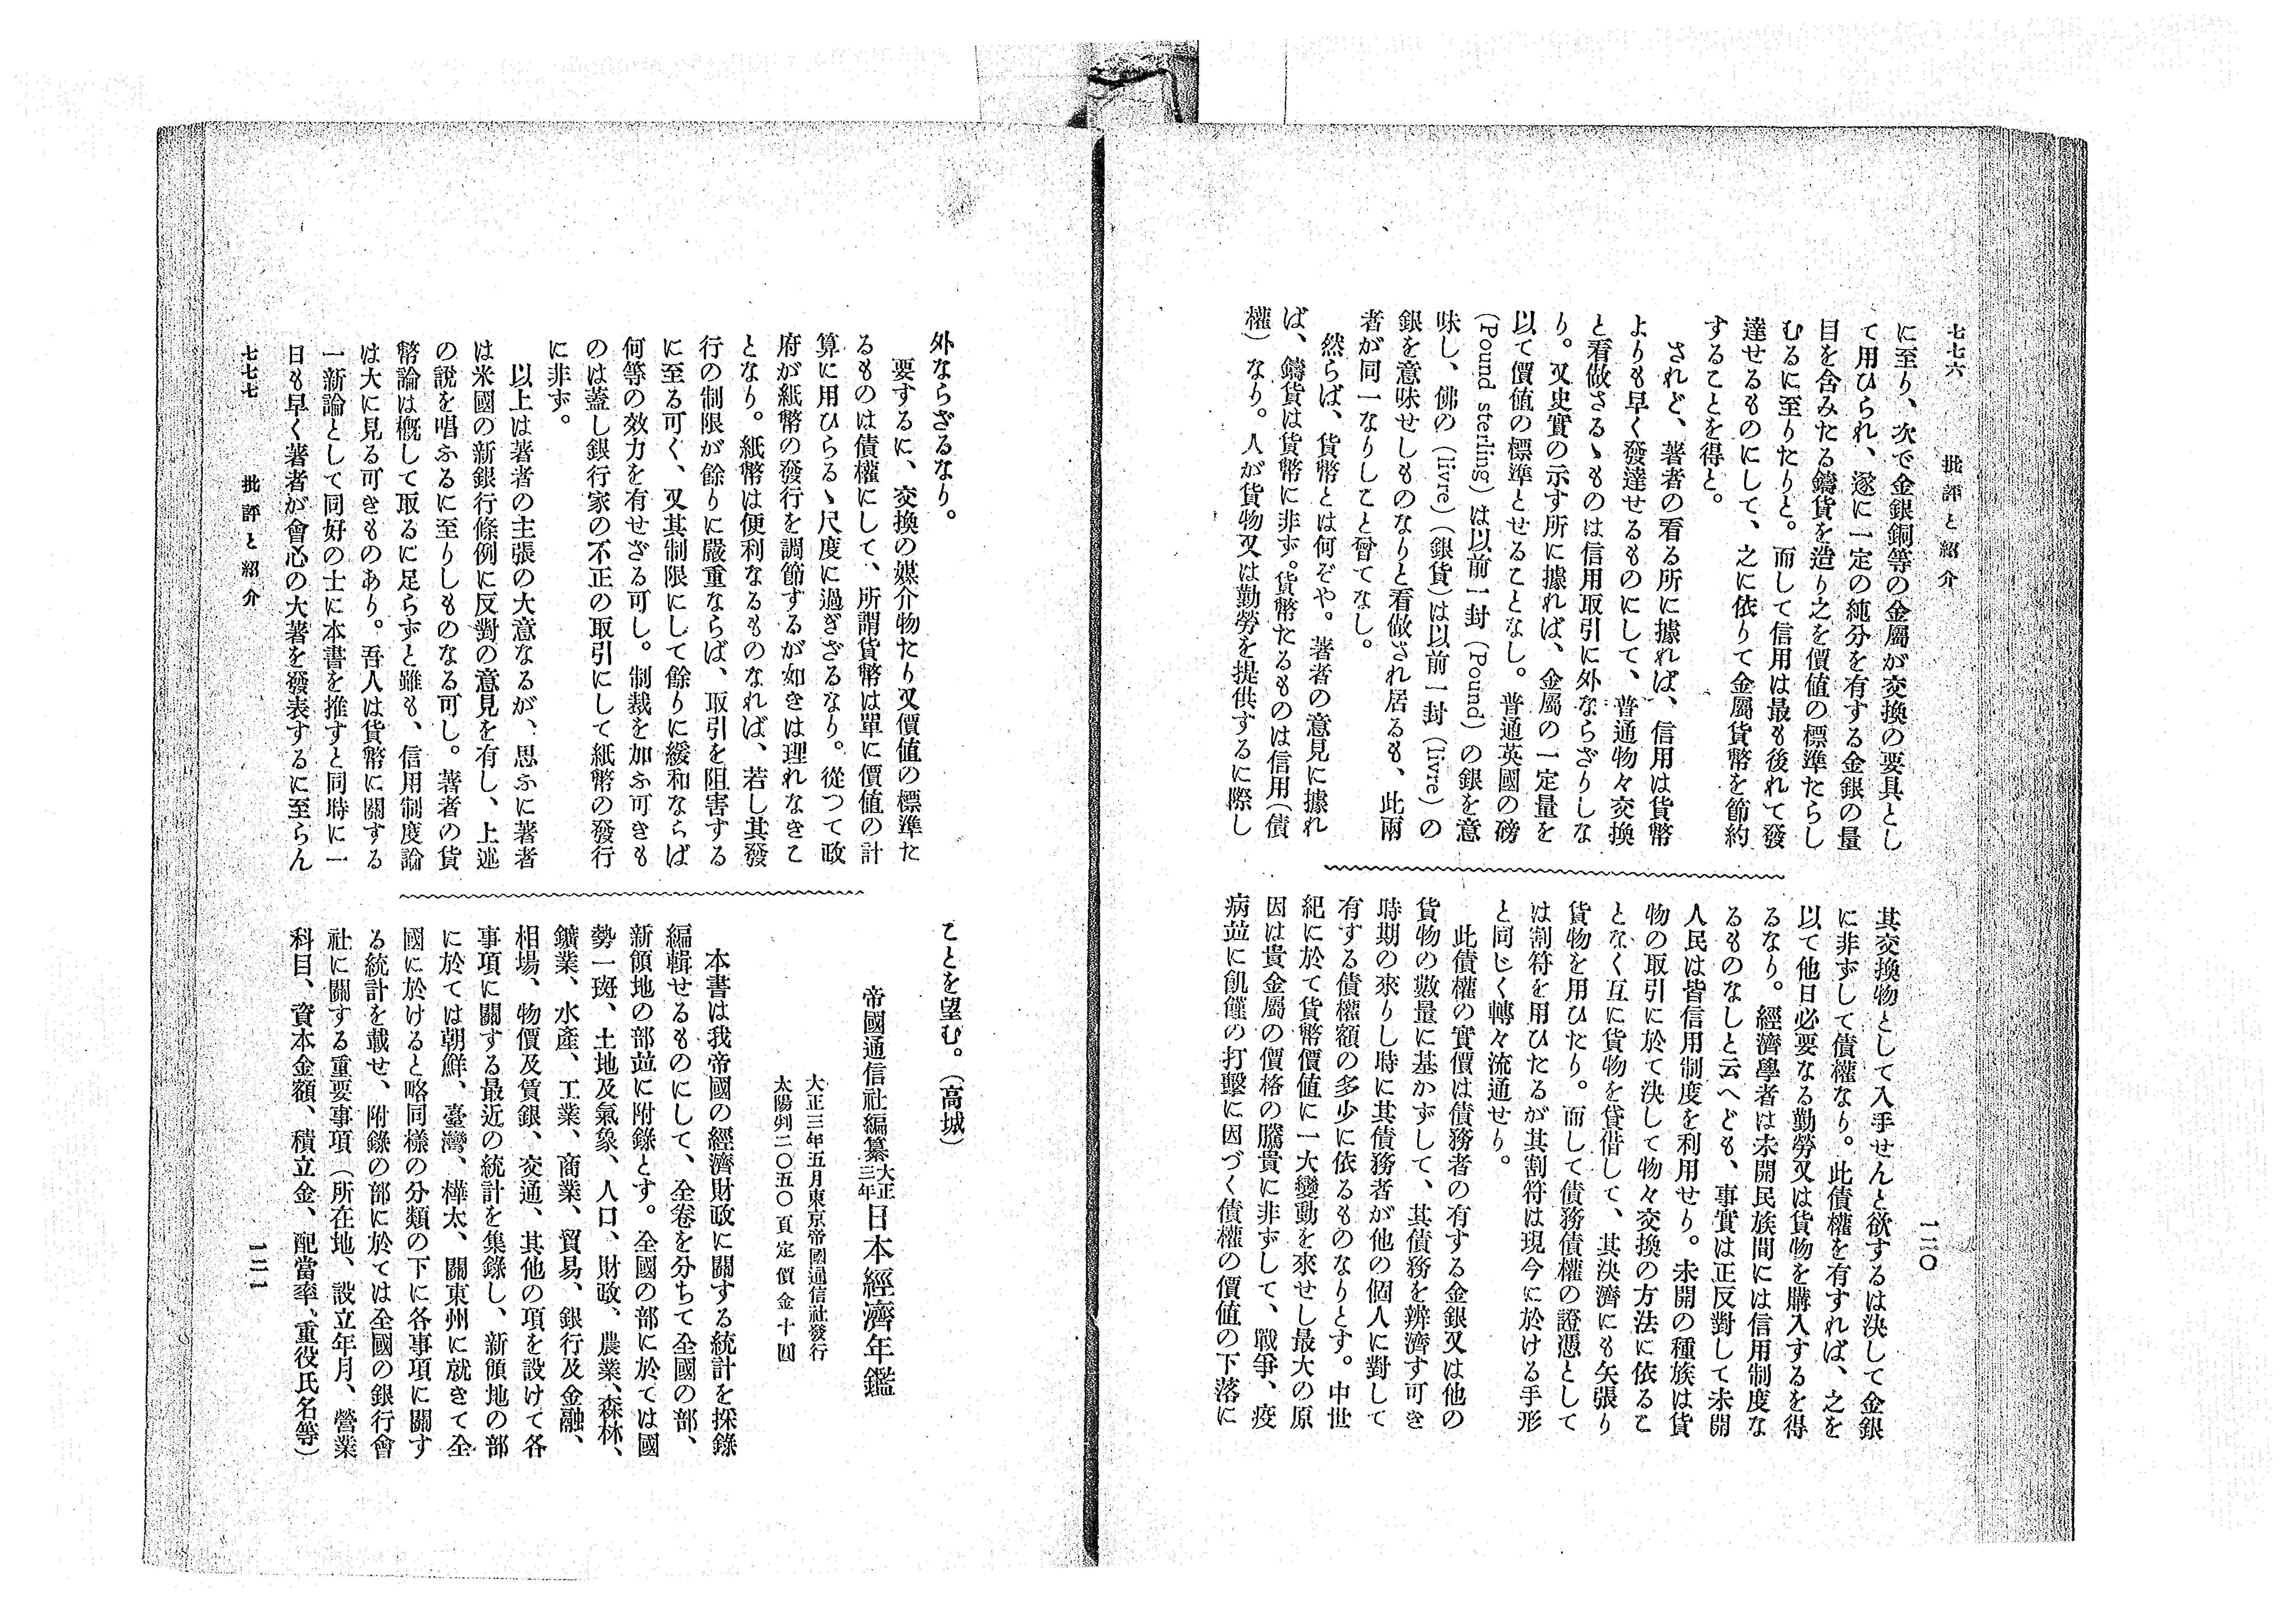 七七六　批評と紹介　一二〇
に至り、次で金銀銅等の金屬が交換の要具とし
て用ひられ、遂に一定の純分を有する金銀の量
目を含みたる鑄貨を造り之を價値の標準たらし
むるに至りたりと。而して信用は最も後れて發
達せるものにして、之に依りて金屬貨幣を節約
することを得と。
されど、著者の看る所に據れば、信用は貨幣
よりも早く發達せるものにして、普通物々交換
と看做さるゝものは信用取引に外ならざりしな
り。又史實の示す所に據れば、金屬の一定量を
以て價値の標準とせることなし。普通英國の磅
(Pound sterling) は以前一封 (Pound) の銀を意
味し、佛の (livre) (銀貨) は以前一封 (livre) の
銀を意味せしものなりと看做され居るも、此兩
者が同一なりしこと曾てなし。
然らば、貨幣とは何ぞや。著者の意見に據れ
ば、鑄貨は貨幣に非ず。貨幣たるものは信用(債
權) なり。人が貨物又は勤勞を提供するに際し
其交換物として入手せんと欲するは決して金銀
に非ずして債權なり。此債權を有すれば、之を
以て他日必要なる勤勞又は貨物を購入するを得
るなり。經濟學者は未開民族間には信用制度な
るものなしと云へども、事實は正反對して未開
人民は皆信用制度を利用せり。未開の種族は貨
物の取引に於て決して物々交換の方法に依るこ
となく互に貨物を貸借して、其決濟にも矢張り
貨物を用ひたり。而して債務債權の證憑として
は割符を用ひたるが其割符は現今に於ける手形
と同じく轉々流通せり。
此債權の實價は債務者の有する金銀又は他の
貨物の數量に基かずして、其債務を辨濟す可き
時期の來りし時に其債務者が他の個人に對して
有する債權額の多少に依るものなりとす。中世
紀に於て貨幣價値に一大變動を來せし最大の原
因は貴金屬の價格の騰貴に非ずして、戰爭、疫
病並に飢饉の打擊に因づく債權の價値の下落に
外ならざるなり。
要するに、交換の媒介物たり又價値の標準た
るものは債權にして、所謂貨幣は單に價値の計
算に用ひらるゝ尺度に過ぎざるなり。從つて政
府が紙幣の發行を調節するが如きは理れなきこ
となり。紙幣は便利なるものなれば、若し其發
行の制限が餘りに嚴重ならば、取引を阻害する
に至る可く、又其制限にして餘りに緩和ならば
何等の效力を有せざる可し。制裁を加ふ可きも
のは蓋し銀行家の不正の取引にして紙幣の發行
に非ず。
以上は著者の主張の大意なるが、思ふに著者
は米國の新銀行條例に反對の意見を有し、上述
の說を唱ふるに至りしものなる可し。著者の貨
幣論は槪して取るに足らずと雖も、信用制度論
は大に見る可きものあり。吾人は貨幣に關する
一新論として同好の士に本書を推すと同時に一
日も早く著者が會心の大著を發表するに至らん
ことを望む。(高城)
帝國通信社編纂 大正三年 日本經濟年鑑
大正三年五月東京帝國通信社發行
太陽列二〇五〇頁定價金十圓
本書は我帝國の經濟財政に關する統計を採錄
編輯せるものにして、全卷を分ちて全國の部、
新領地の部並に附錄とす。全國の部に於ては國
勢一斑、土地及氣象、人口、財政、農業、森林、
鑛業、水產、工業、商業、貿易、銀行及金融、
相場、物價及賃銀、交通、其他の項を設けて各
事項に關する最近の統計を集錄し、新領地の部
に於ては朝鮮、臺灣、樺太、關東州に就きて全
國に於けると略同樣の分類の下に各事項に關す
る統計を載せ、附錄の部に於ては全國の銀行會
社に關する重要事項 (所在地、設立年月、營業
科目、資本金額、積立金、配當率、重役氏名等)
七七七　批評と紹介　一二一